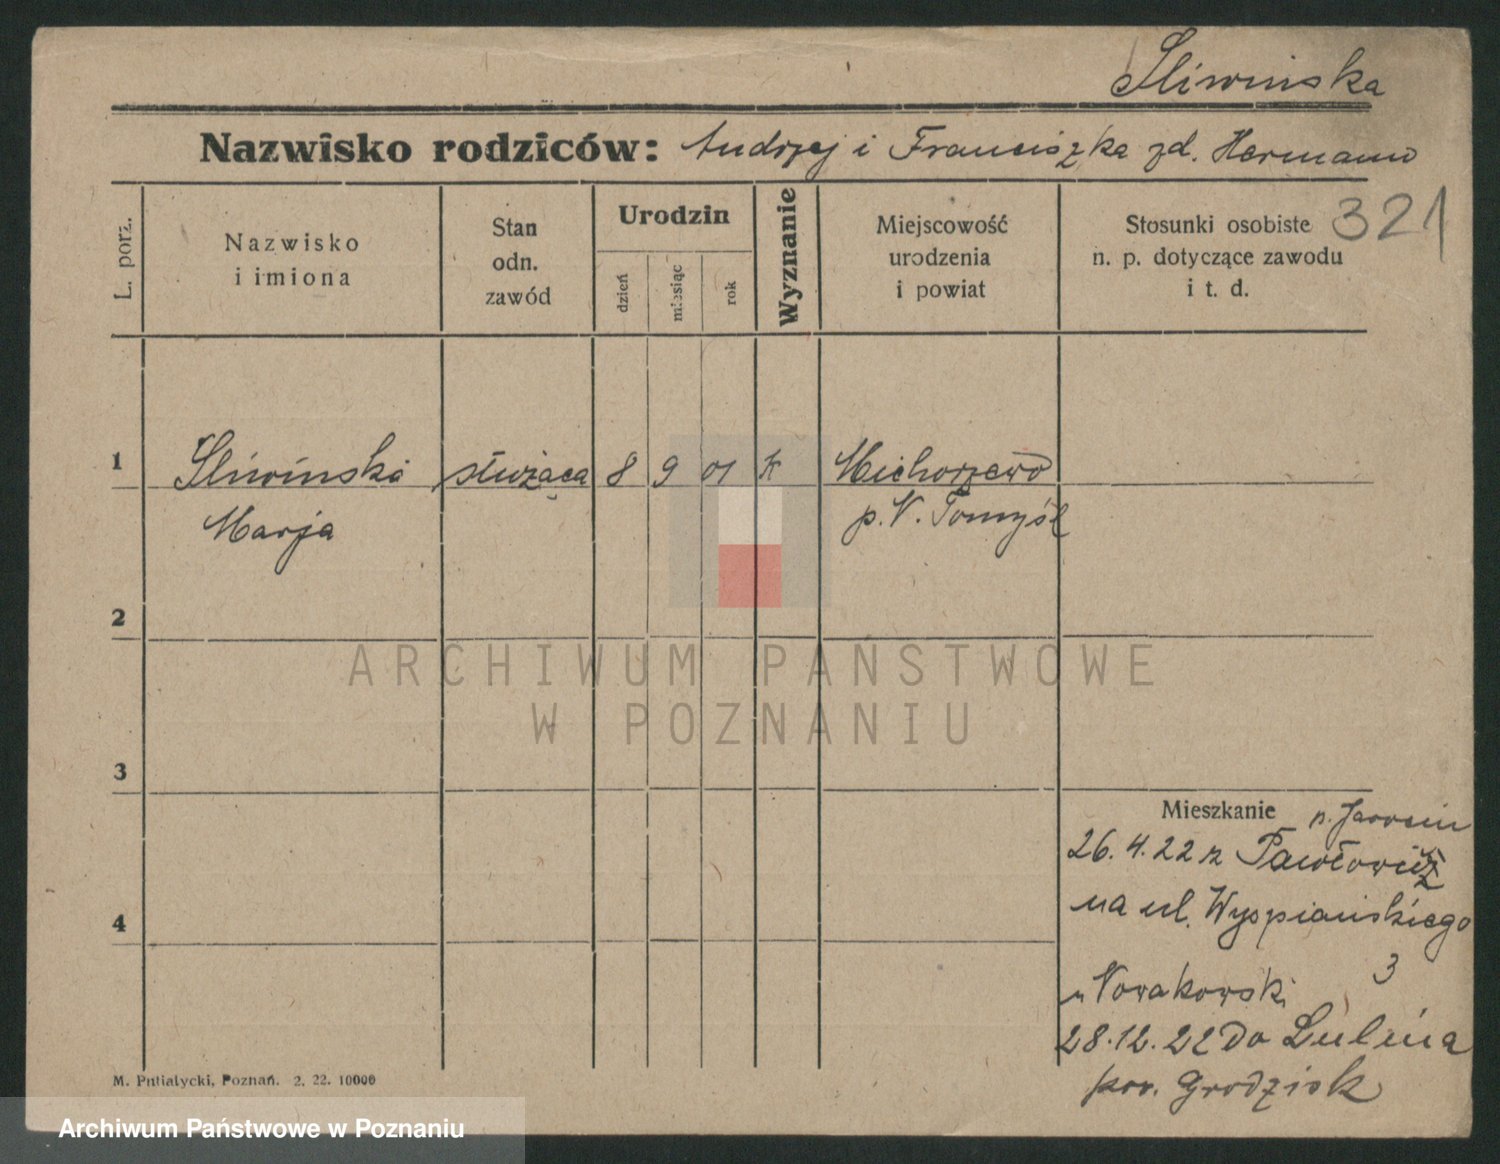 Śliwińska
Nazwisko rodziców: Andrzej i Franciszka zd. Hermann
321
L. porz.
Nazwisko
i imiona
Stan
odn.
zawód
Urodzin
dzień
miesiąc
rok
Wyznanie
Miejscowość
urodzenia
i powiat
Stosunki osobiste
n. p. dotyczące zawodu
i t. d.
1 Śliwińska służąca 8 9 01 k Michorzewo
Marja p. N. Tomyśl
2
ARCHIWUM PAŃSTWOWE
W POZNANIU
3
Mieszkanie p. Jarocin
26. 4. 22 z
4
na ul. Wyspiańskiego
3
u Nowakowski
28. 12. 22 do
pow. Grodzisk
M. Putiatycki, Poznań. 2. 22. 10000
Archiwum Państwowe w Poznaniu